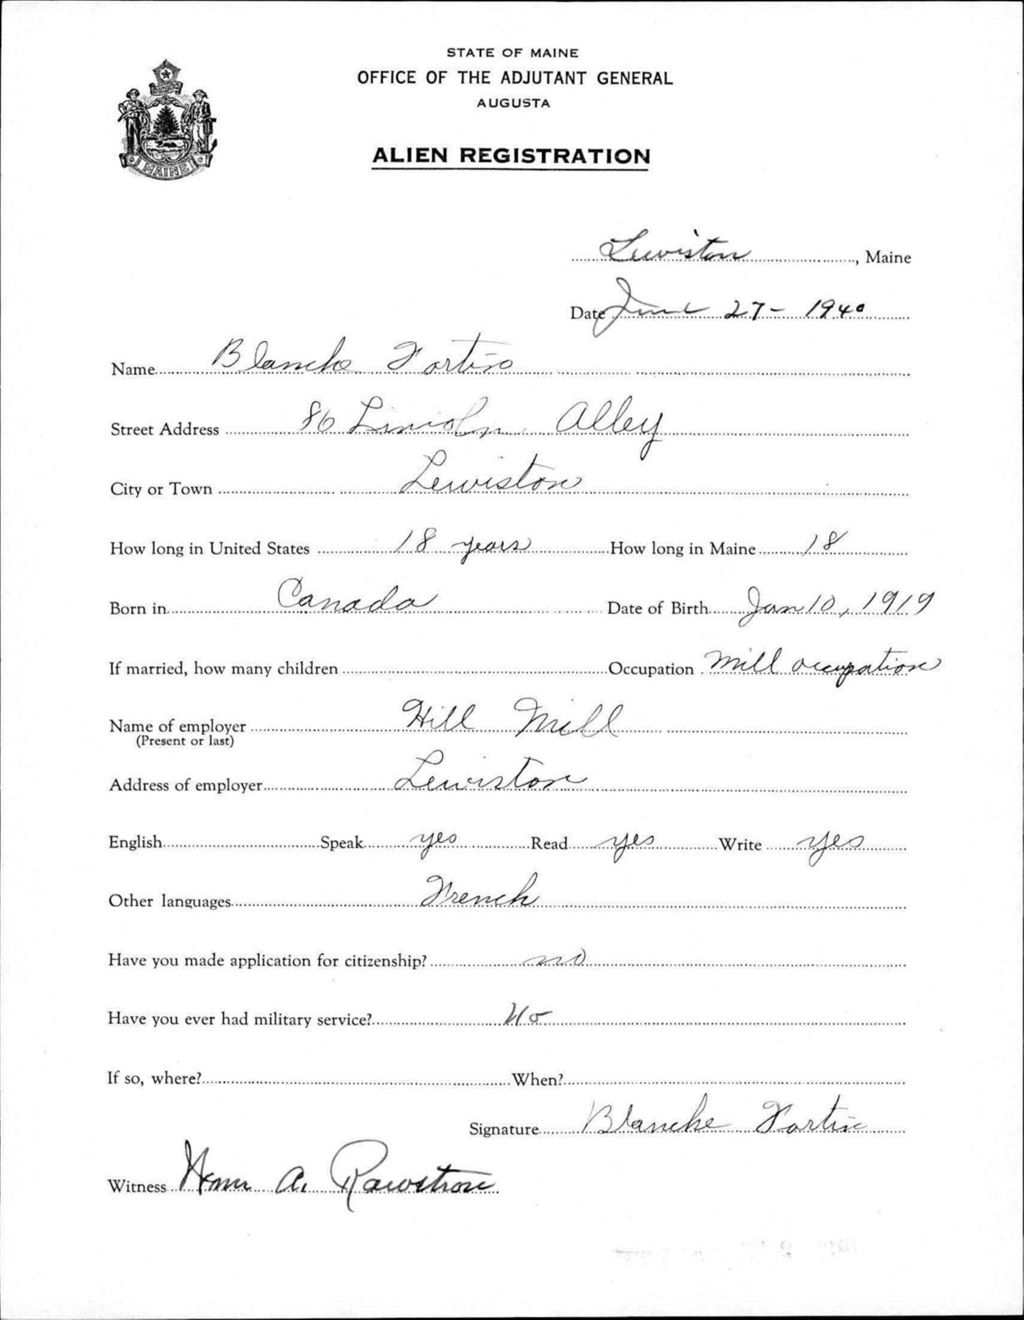 STATE OF MAINE
OFFICE OF THE ADJUTANT GENERAL
AUGUSTA
ALIEN REGISTRATION
MAINE
Lewiston, Maine
Date June 27 - 1940
Name Blanche Fortin
Street Address 86 Lincoln Alley
City or Town Lewiston
How long in United States 18 years How long in Maine 18
Born in Canada Date of Birth Jan 10, 1919
If married, how many children Occupation Mill occupation
Name of employer Hill Mill
(Present or last)
Address of employer Lewiston
English Speak yes Read yes Write yes
Other languages French
Have you made application for citizenship? no
Have you ever had military service? No
If so, where? When?
Signature Blanche Fortin
Witness A. Rawstron